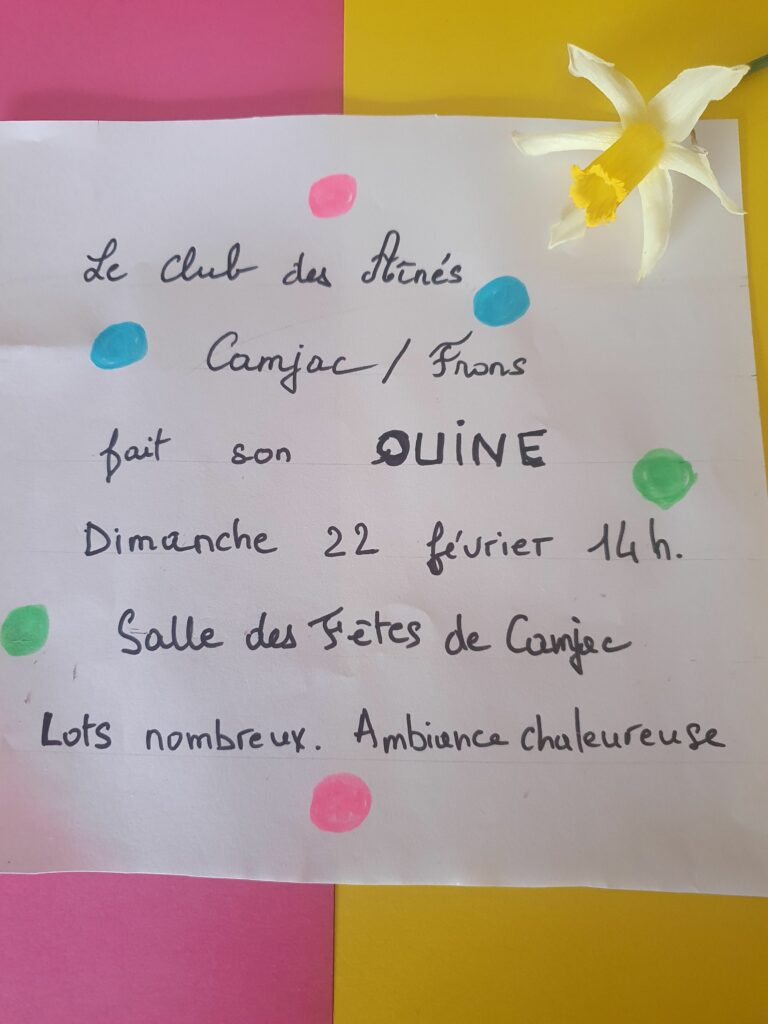 Le club des Aînés
Camjac / Frons
fait son QUINE
Dimanche 22 février 14h.
Salle des Fêtes de Camjac
Lots nombreux. Ambiance chaleureuse